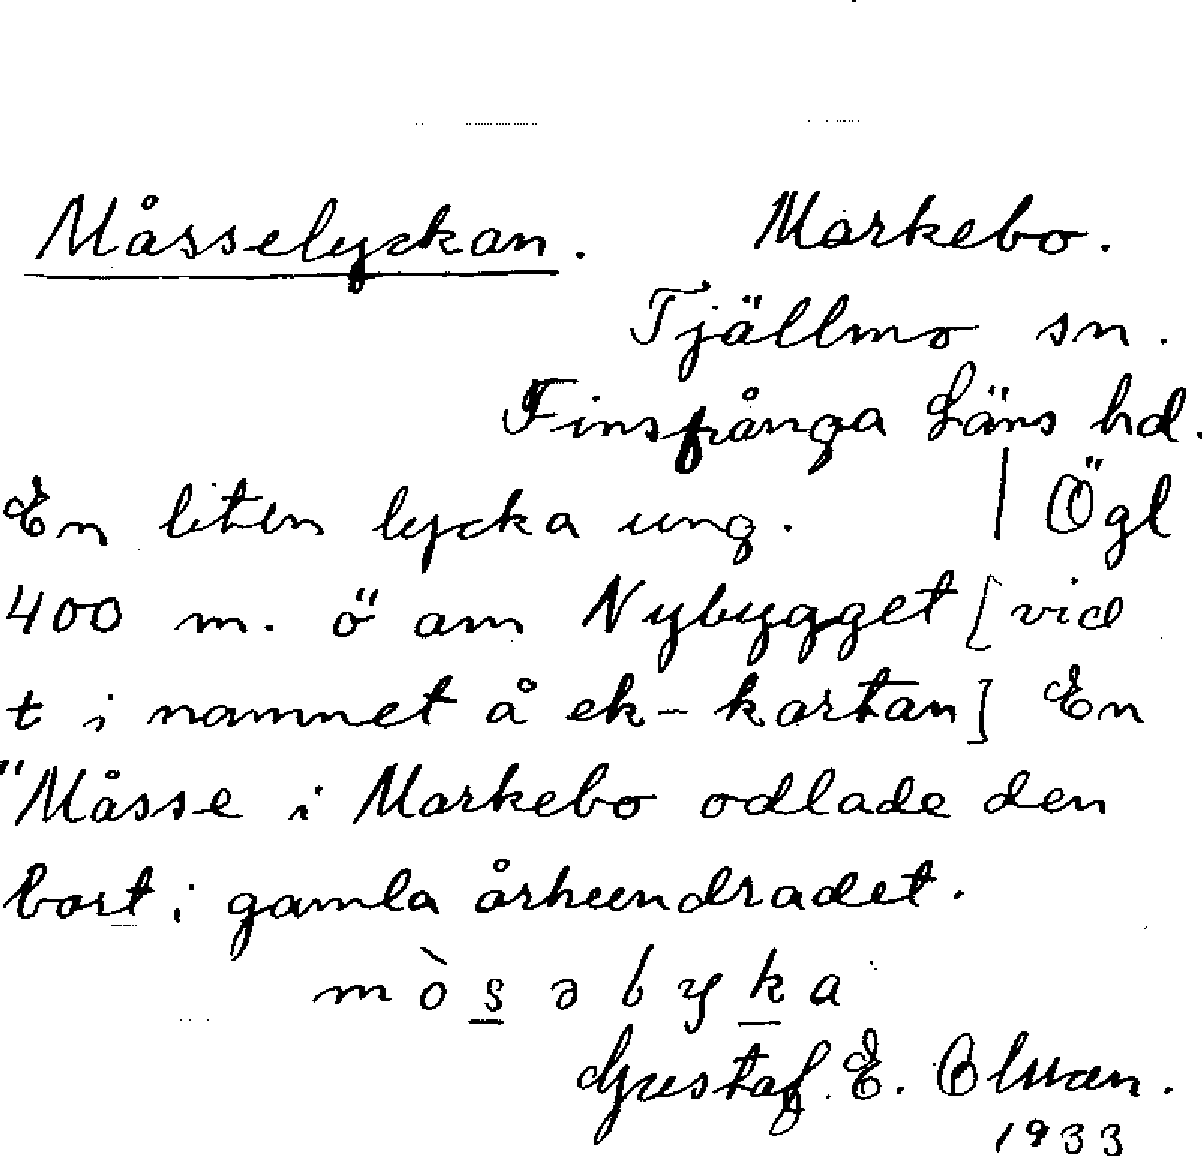 Måsselyckan. Markebo.
Tjällmo sn.
Finspånga Läns hd.
En liten lycka ung. | Ögl
400 m. ö am Nybygget [vid
t i namnet å ek-kartan] En
"Måsse i Markebo odlade den
bort i gamla århundradet.
Gustaf. E.
1933